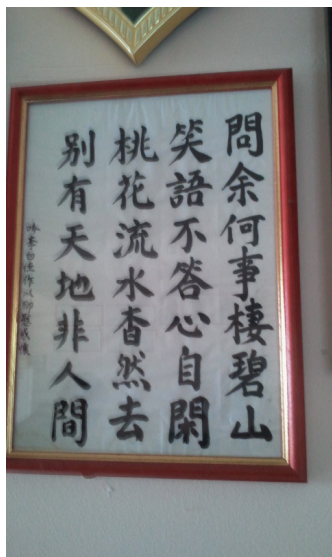 問余何事棲碧山
笑語不答心自閑
桃花流水杳然去
别有天地非人間
李白